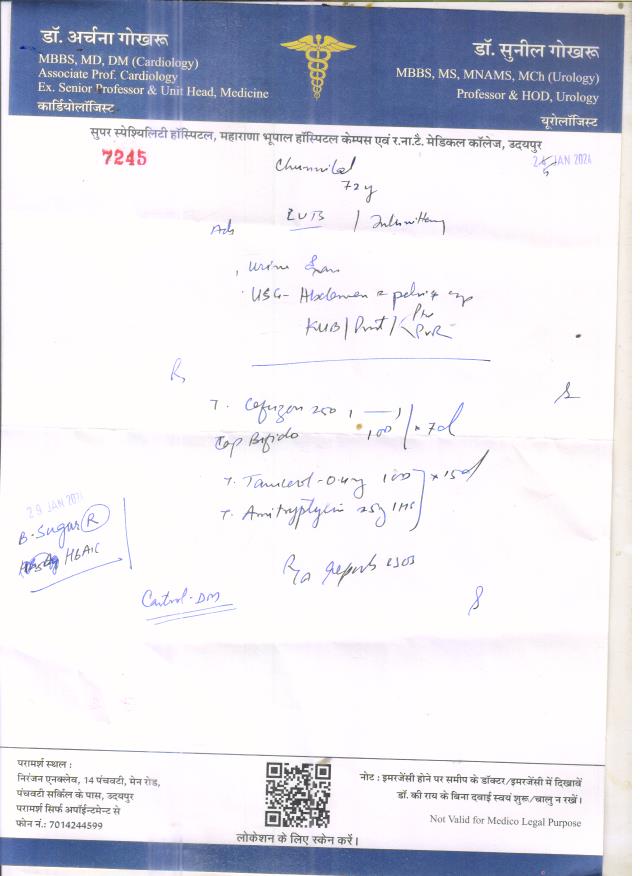 डॉ. अर्चना गोखरू
MBBS, MD, DM (Cardiology)
Associate Prof. Cardiology
Ex. Senior Professor & Unit Head, Medicine
कार्डियोलॉजिस्ट
डॉ. सुनील गोखरू
MBBS, MS, MNAMS, MCh (Urology)
Professor & HOD, Urology
यूरोलॉजिस्ट
सुपर स्पेश्यिलिटी हॉस्पिटल, महाराणा भूपाल हॉस्पिटल केम्पस एवं र.ना.टै. मेडिकल कॉलेज, उदयपुर
7245
JAN 2024
72y
Adv
Urine
USG- Abdomen
KUB/Prost/
PVR
Rx
T. 250
Cap Bifido 100 x 7d
T. 0.4mg x 15d
T. Amitryptylin 25g 1HS
29 JAN 202
B. Sugar (R)
HbA1C
reports
Control-DM
परामर्श स्थल :
निरंजन एनक्लेव, 14 पंचवटी, मेन रोड,
पंचवटी सर्किल के पास, उदयपुर
परामर्श सिर्फ अपॉईन्टमेन्ट से
फोन नं.: 7014244599
लोकेशन के लिए स्केन करें।
नोट : इमरजेंसी होने पर समीप के डॉक्टर/इमरजेंसी में दिखावें
डॉ. की राय के बिना दवाई स्वयं शुरू/चालु न रखें।
Not Valid for Medico Legal Purpose